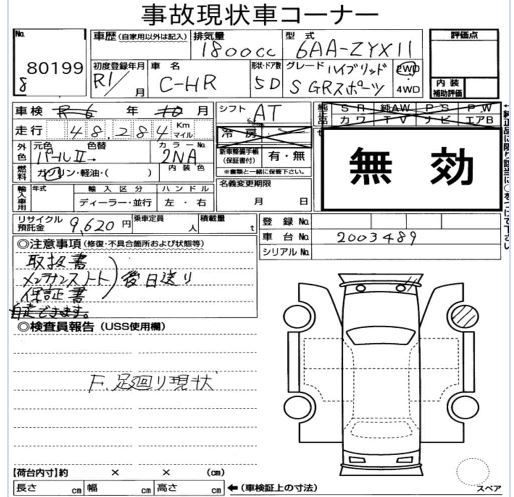 事故現状車コーナー
No.
80199
8
車歴 (自家用以外は記入)
排気量
1800cc
型式
6AA-ZYX11
評価点
初度登録年月
R1/
車名
C-HR
形状・ドア数
5D
グレード ハイブリッド
S GRスポーツ
2WD
4WD
内装
補助評価
車検 R6年 10月
シフト AT
純正品
SR 純AW PS PW
カワ TV ナビ エアB
走行 48,284 Km マイル
冷房
無効
外色
元色 色替 カラーNo.
パールII→ 2NA
新車整備手帳
(保証書付)
有・無
※書類と一緒に保管下さい
燃料
ガソリン・軽油・( )
内装色
名義変更期限
月 日
輸入車用
年式
輸入区分
ディーラー・並行
ハンドル
左・右
リサイクル預託金 9,620円
乗車定員 人
積載量 t
登録No.
車台No. 2003489
シリアルNo.
◎注意事項 (修復・不具合箇所および状態等)
取扱書
メンテナンスノート 後日送り
保証書
自走できます。
◎検査員報告 (USS使用欄)
F.足廻り現状
【荷台内寸】約 × × (cm)
長さ cm 幅 cm 高さ cm ←(車検証上の寸法)
スペア